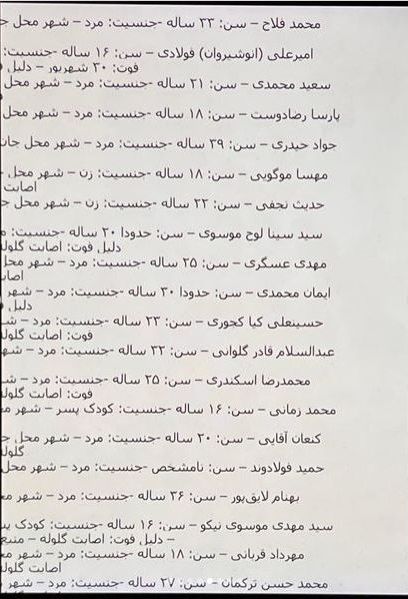 محمد فلاح – سن: ۲۳ ساله -جنسیت: مرد – شهر محل
امیرعلی (انوشیروان) فولادی – سن: ۱۶ ساله -جنسیت:
فوت: ۳۰ شهریور – دلیل
سعید محمدی – سن: ۲۱ ساله -جنسیت: مرد – شهر محل
پارسا رضادوست – سن: ۱۸ ساله -جنسیت: مرد – شهر محل
جواد حیدری – سن: ۳۹ ساله -جنسیت: مرد – شهر محل جان
مهسا موگویی – سن: ۱۸ ساله -جنسیت: زن – شهر محل
اصابت
حدیث نجفی – سن: ۲۲ ساله -جنسیت: زن – شهر محل
سید سینا لوح موسوی – سن: حدودا ۲۰ ساله -جنسیت:
دلیل فوت: اصابت گلوله
مهدی عسگری – سن: ۲۵ ساله -جنسیت: مرد – شهر محل
ایمان محمدی – سن: حدودا ۳۰ ساله -جنسیت: مرد – شهر
دلیل
حسینعلی کیا کجوری – سن: ۲۳ ساله -جنسیت: مرد –
فوت: اصابت گلوله
عبدالسلام قادر گلوانی – سن: ۳۲ ساله -جنسیت: مرد –
محمدرضا اسکندری – سن: ۲۵ ساله -جنسیت: مرد –
فوت: اصابت گلوله
محمد زمانی – سن: ۱۶ ساله -جنسیت: کودک پسر – شهر
کنعان آقایی – سن: ۲۰ ساله -جنسیت: مرد – شهر محل
گلوله
حمید فولادوند – سن: نامشخص -جنسیت: مرد – شهر محل
بهنام لایق‌پور – سن: ۳۶ ساله -جنسیت: مرد – شهر
سید مهدی موسوی نیکو – سن: ۱۶ ساله -جنسیت: کودک
– دلیل فوت: اصابت گلوله – منبع
مهرداد قربانی – سن: ۱۸ ساله -جنسیت: مرد – شهر
اصابت گلوله
محمد حسن ترکمان – سن: ۲۷ ساله -جنسیت: مرد – شهر